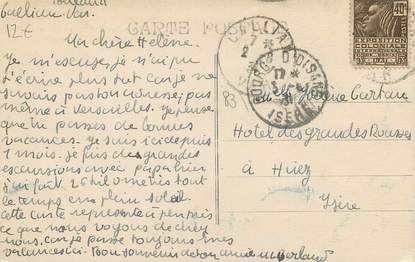 Guéliane Ven.
12 €
CARTE POSTALE
Ma chère Hélène.
Je m'excuse, je n'ai pu
t'écrire plus tôt car je ne
savais pas ton adresse; pas
même à Versailles. Je pense
que tu passes de bonnes
vacances. Je suis ici depuis
1 mois. Je fais des grandes
excursions avec papa hier
j'ai fait 25 kilomètres tout
le temps en plein soleil.
cette carte représente à peu près
ce que nous voyons de chez
nous. car je passe toujours mes
vacances ici. Bon souvenir de ton amie
83
BOURG D'OISANS
17 *
31
ISERE
40c
EXPOSITION
COLONIALE
INTERNATIONALE
PARIS 1931
Hotel des grandes Rousses
à Huez
Isère